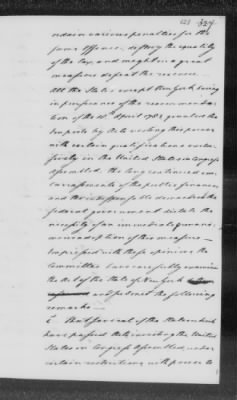 121 329
ordain various penalties for the
same offence, destroy the equality
of the tax, and might in a great
measure defeat the revenue.
All the States except New York having
in pursuance of the recommenda-
tion of the 18th April 1783, granted the
Imposts by Acts vesting the power
with certain qualifications exclu-
sively in the United States in Congress
assembled. The long continued em-
barrassments of the public finances
and the indispensible demands on the
federal government dictate the
necessity of an immediate &
adoption of this measure —
Impressed with these opinions the
Committee have carefully examined
the Act of the State of New York
and submit the following
remarks —
1. That several of the States which
have passed Acts investing the United
States in Congress Assembled under
certain restrictions with power to